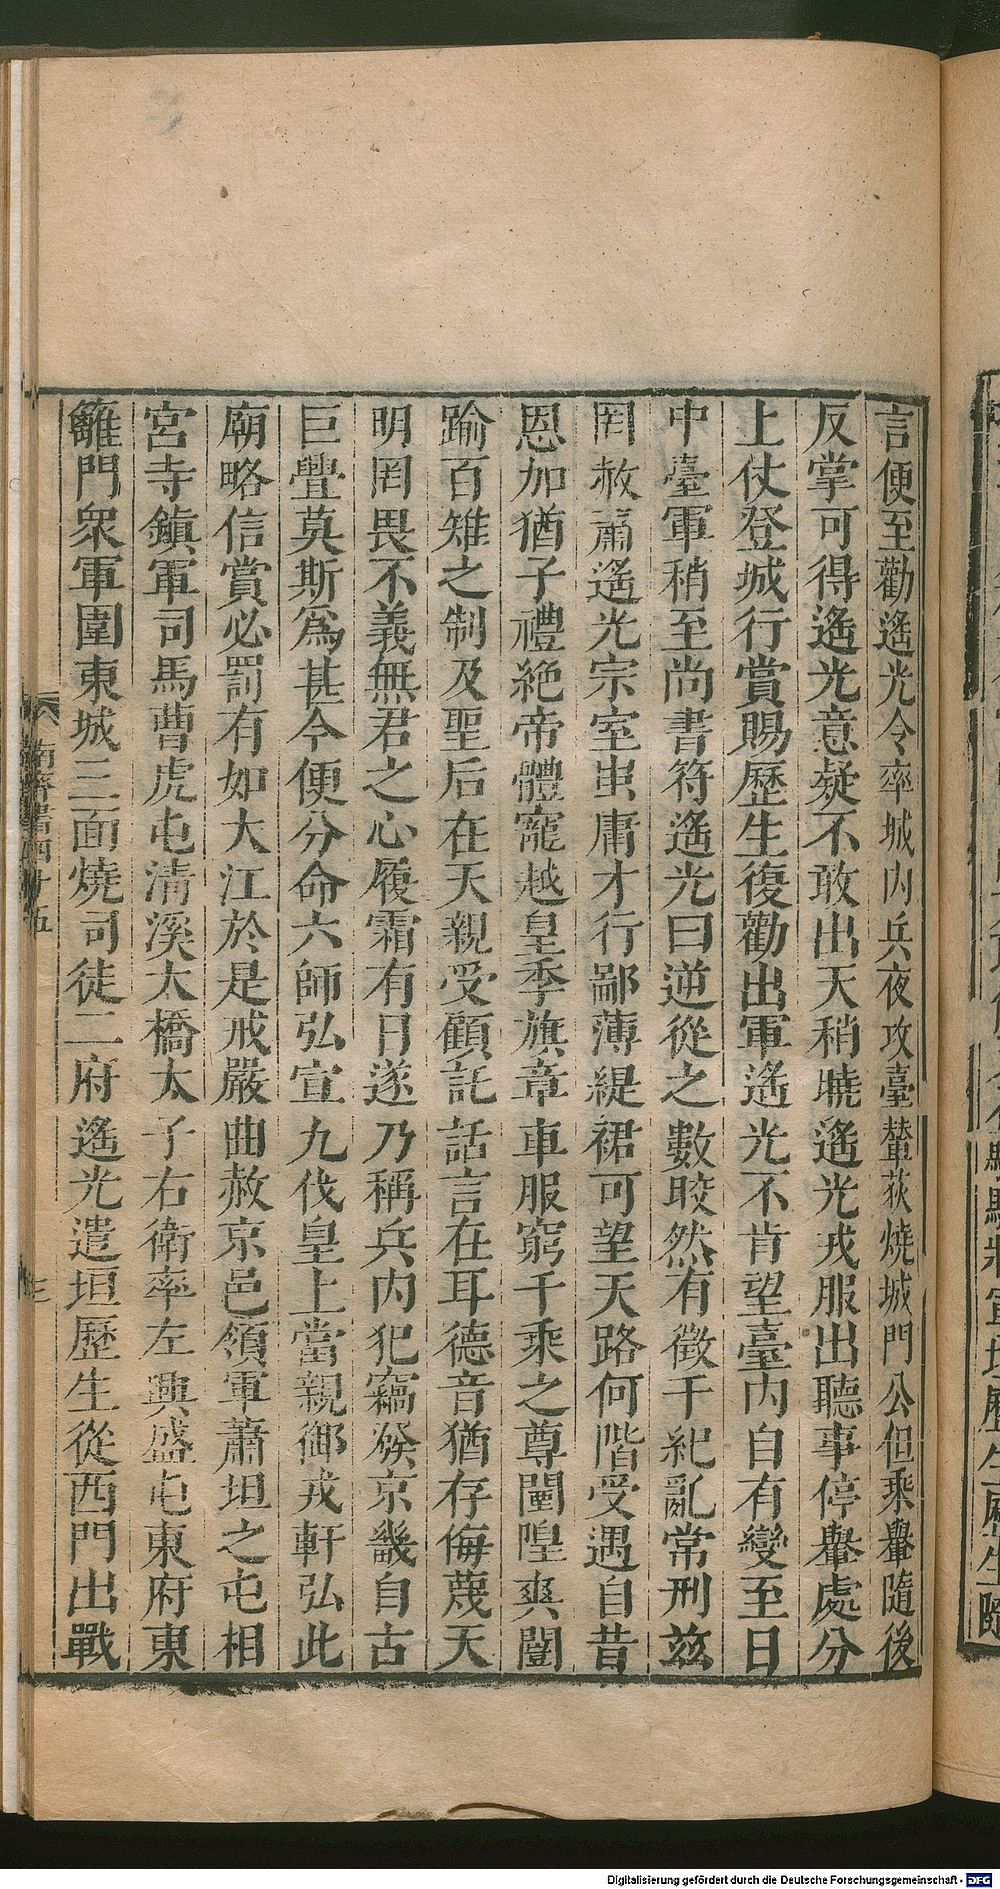 言便至勸遙光令率城內兵夜攻臺輦荻燒城門公但乘轝隨後
反掌可得遙光意疑不敢出天稍曉遙光戎服出聽事停轝處分
上仗登城行賞賜歷生復勸出軍遙光不肯望臺內自有變至日
中臺軍稍至尚書符遙光曰逆從之數皎然有徵干紀亂常刑茲
罔赦蕭遙光宗室蚩庸才行鄙薄緹裙可望天路何階受遇自昔
恩加猶子禮絕帝體寵越皇季旗章車服窮千乘之尊闉隍爽闓
踰百雉之制及聖后在天親受顧託話言在耳德音猶存侮蔑天
明罔畏不義無君之心履霜有日遂乃稱兵內犯竊發京畿自古
巨釁莫斯爲甚今便分命六師弘宣九伐皇上當親御戎軒弘此
廟略信賞必罰有如大江於是戒嚴曲赦京邑領軍蕭坦之屯相
宮寺鎮軍司馬曹虎屯清溪大橋太子右衛率左興盛屯東府東
籬門衆軍圍東城三面燒司徒二府遙光遣垣歷生從西門出戰
南齊書四十五
Digitalisierung gefördert durch die Deutsche Forschungsgemeinschaft - DFG